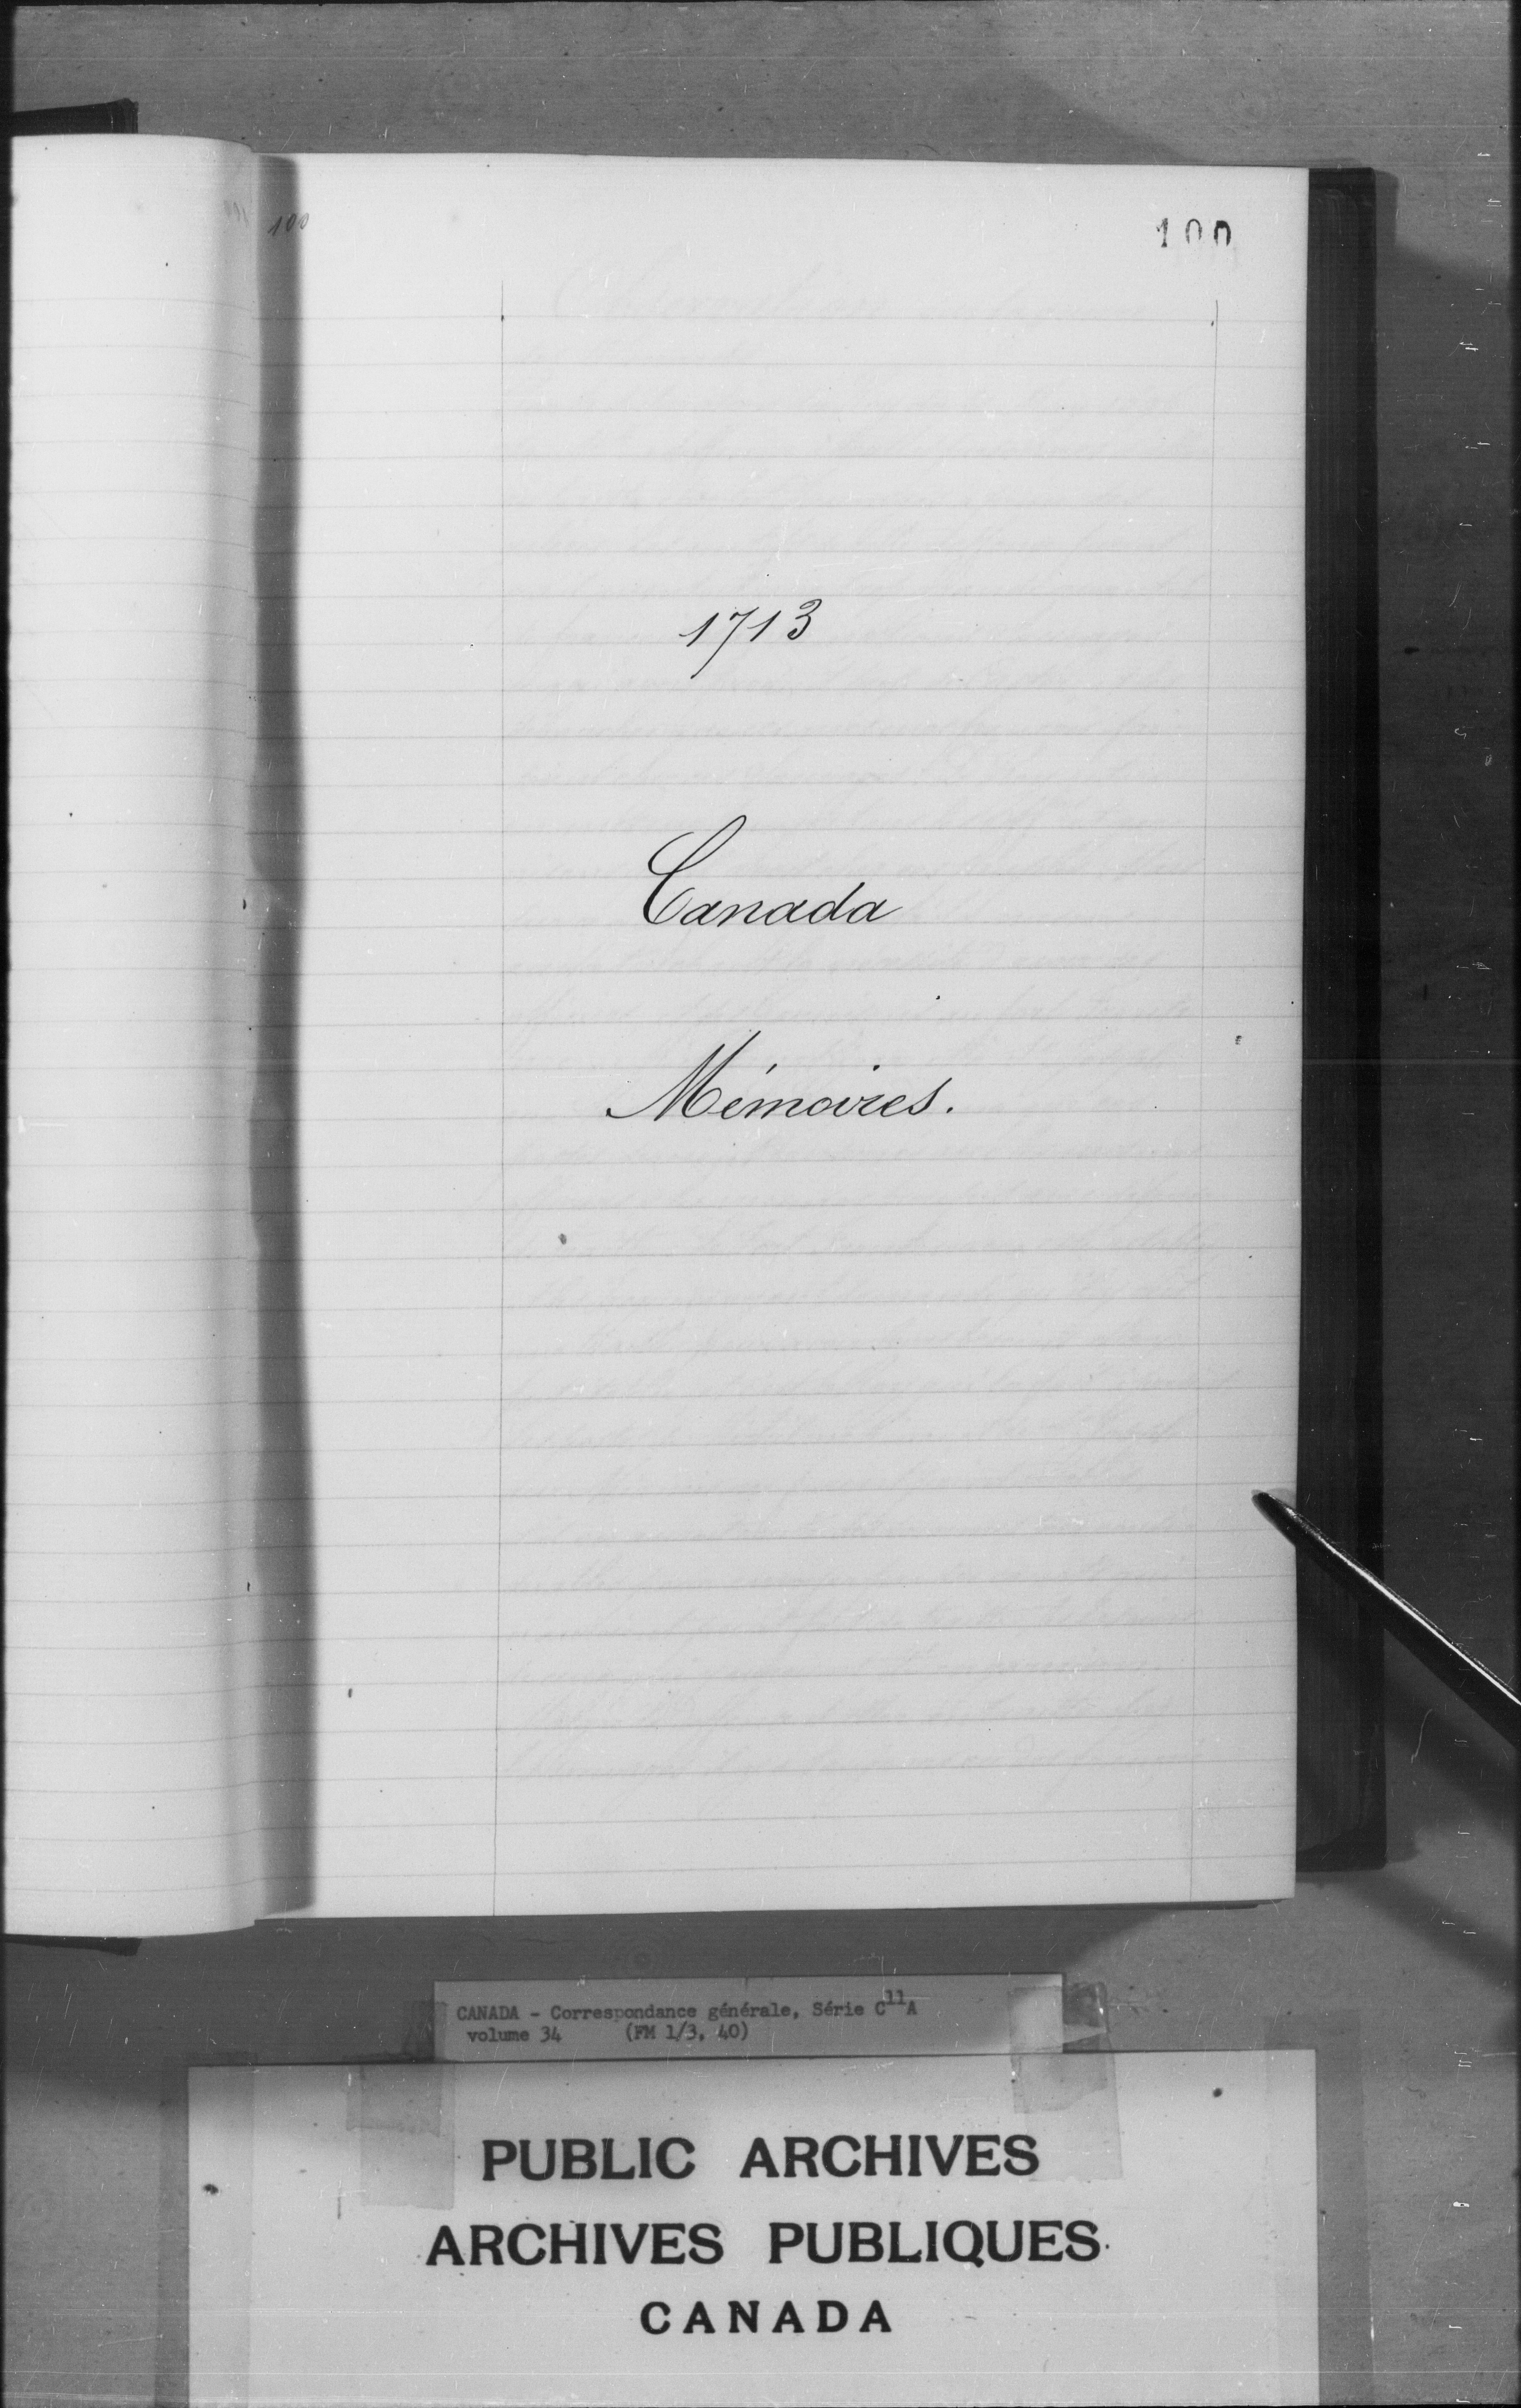 100
100
1713
Canada
Mémoires.
CANADA - Correspondance générale, Série C11A
volume 34 (FM 1/3, 40)
PUBLIC ARCHIVES
ARCHIVES PUBLIQUES
CANADA